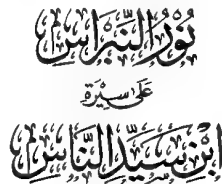 نُوْرُ النِّبْرَاسِ
عَلَى سِيْرَةِ
ابْنِ سَيِّدِ النَّاسِ